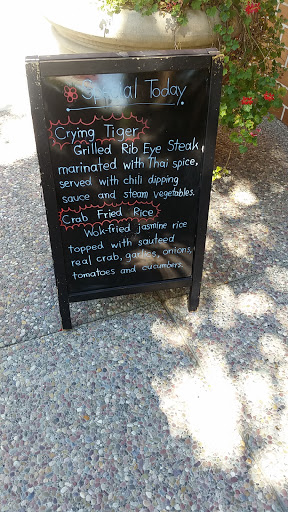 Special Today
Crying Tiger
Grilled Rib Eye Steak
marinated with Thai spice,
served with chili dipping
sauce and steam vegetables.
Crab Fried Rice
Wok-fried jasmine rice
topped with sauteed
real crab, garlics, onions,
tomatoes and cucumbers.